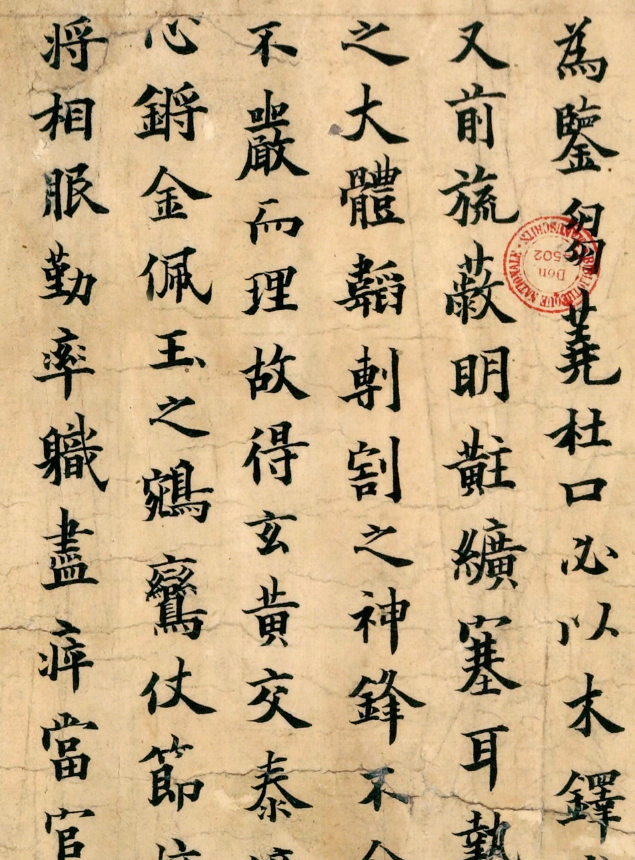 為鑒芻蕘杜口必以木鐸
又前旒蔽明黈纊塞耳執
之大體韜剸割之神鋒不
不嚴而理故得玄黃交泰
心鏘金佩玉之鵷鸞仗節
将相服勤率職盡瘁當官
BIBLIOTHÈQUE NATIONALE
Don